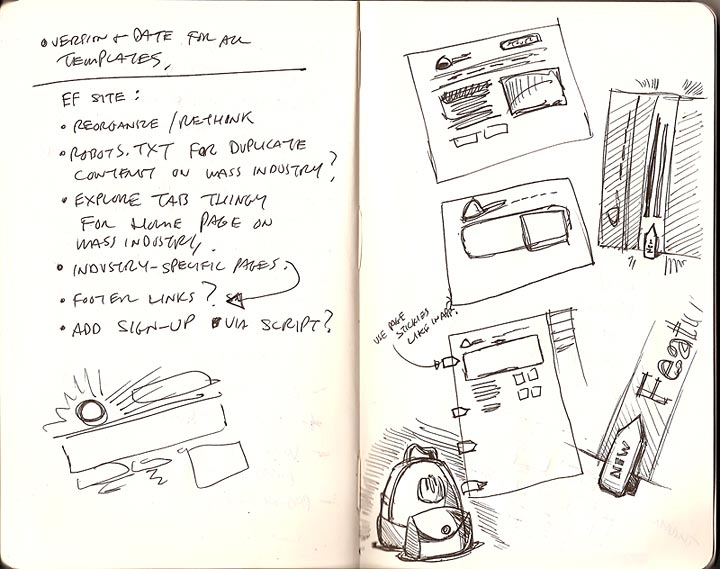 • VERSION + DATE FOR ALL
TEMPLATES.
EF SITE:
• REORGANIZE / RETHINK
• ROBOTS.TXT FOR DUPLICATE
CONTENT ON MASS INDUSTRY?
• EXPLORE TAB THINGY
FOR HOME PAGE ON
MASS INDUSTRY.
• INDUSTRY-SPECIFIC PAGES.
• FOOTER LINKS?
• ADD SIGN-UP VIA SCRIPT?
USE PAGE
STICKIES
LIKE
NEW
Featur
NEW